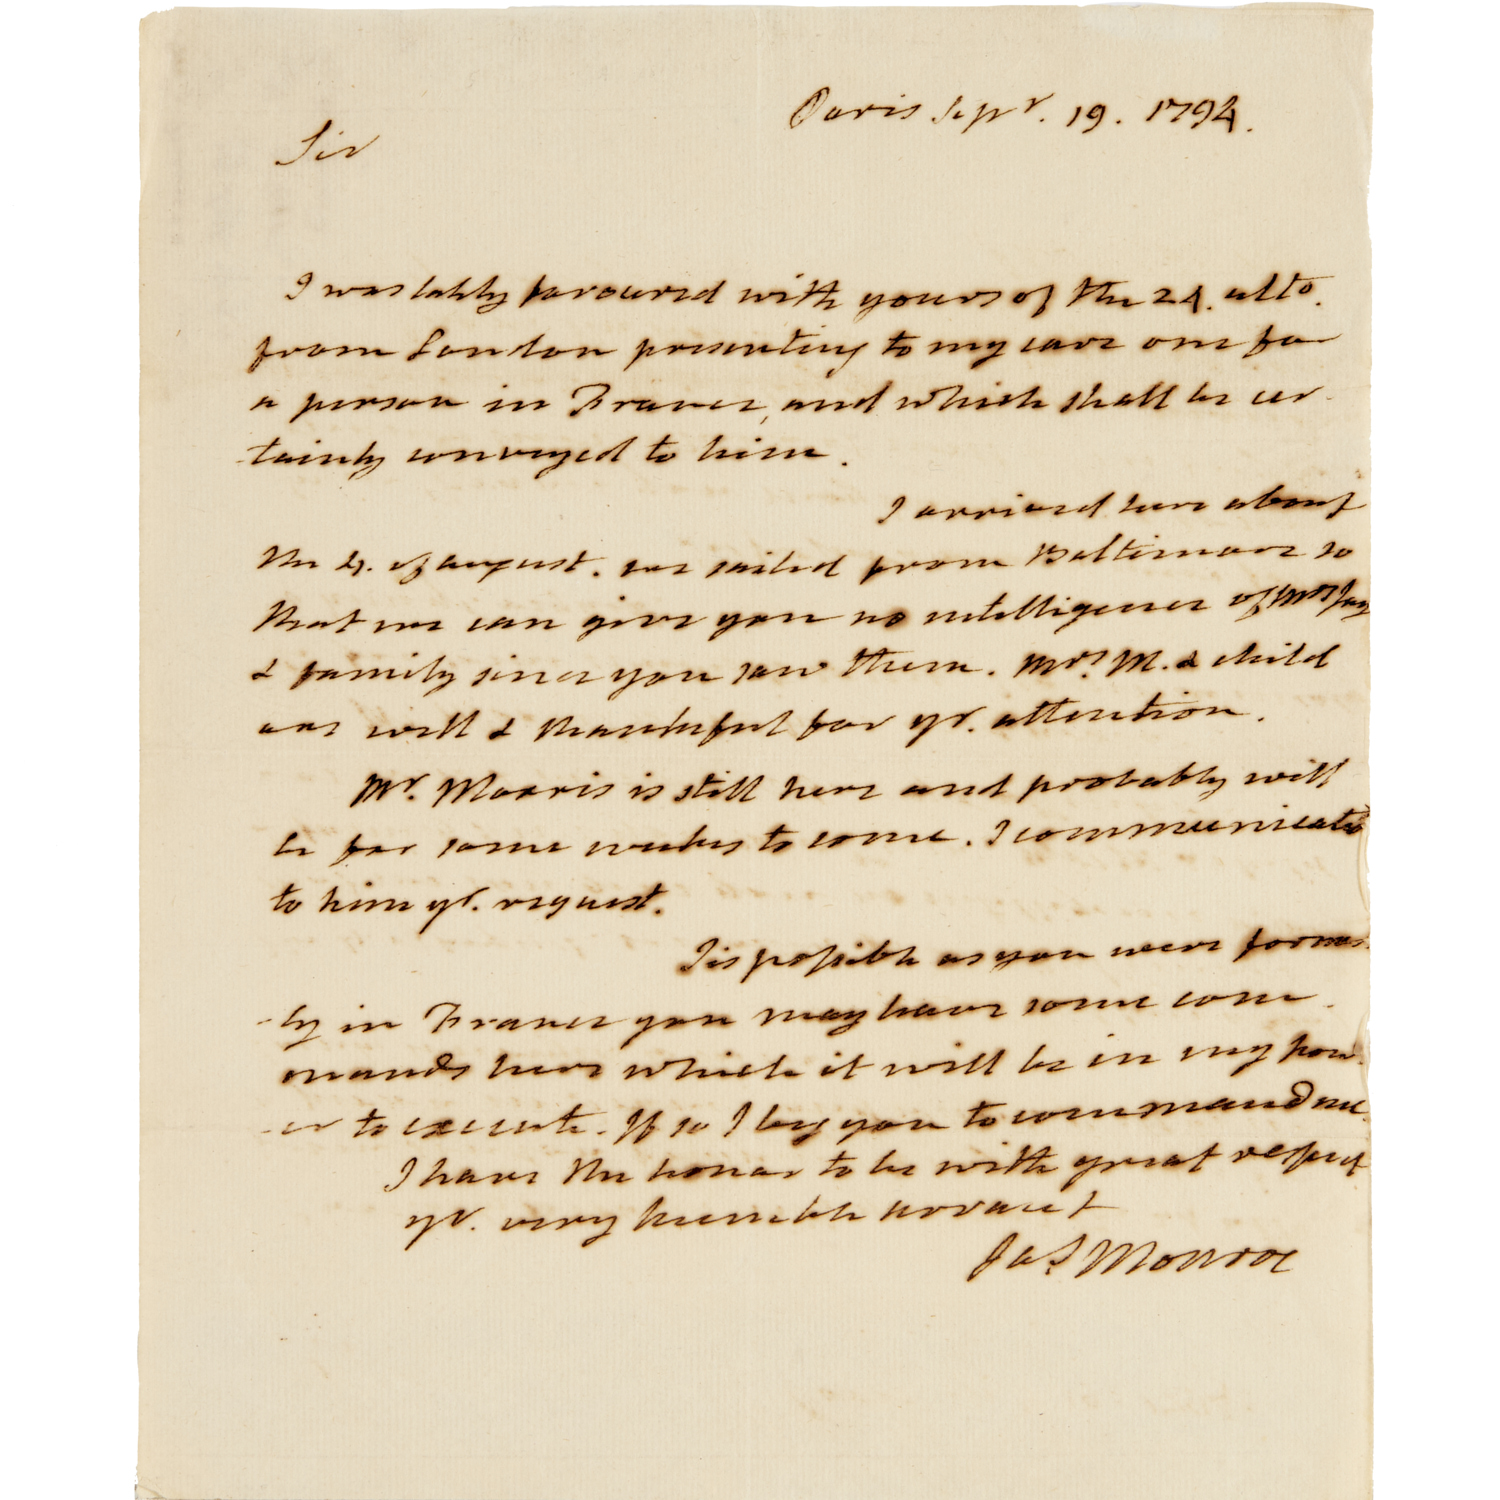 Paris Sepr. 19. 1794.
Sir
I was lately favoured with yours of the 24. ulto.
from London presenting to my care one for
a person in France, and which shall be cer-
-tainly conveyed to him.
I arrived here about
the of august. we sailed from Baltimore so
that we can give you no intelligence of Mrs Jay
& family since you saw them. Mrs. M. & child
are well & thankful for yr. attention.
Mr. Morris is still here and probably will
be for some weeks to come. I communicated
to him yr. request.
Tis possible as you were former
-ly in France you may have some com-
mands here which it will be in my pow-
-er to execute. If so I beg you to command me.
I have the honor to be with great respect
yr. very humble servant
Jas Monroe